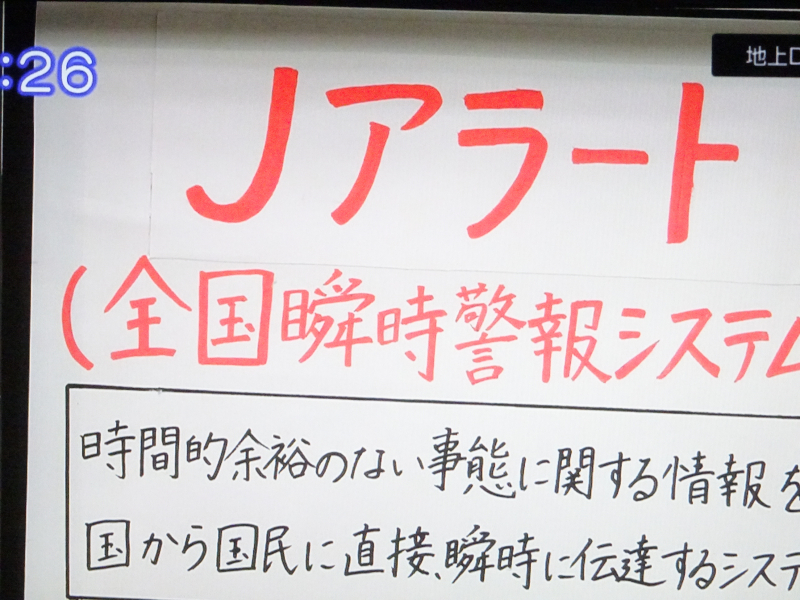 :26
地上D
Jアラート
(全国瞬時警報システム
時間的余裕のない事態に関する情報を
国から国民に直接、瞬時に伝達するシステ